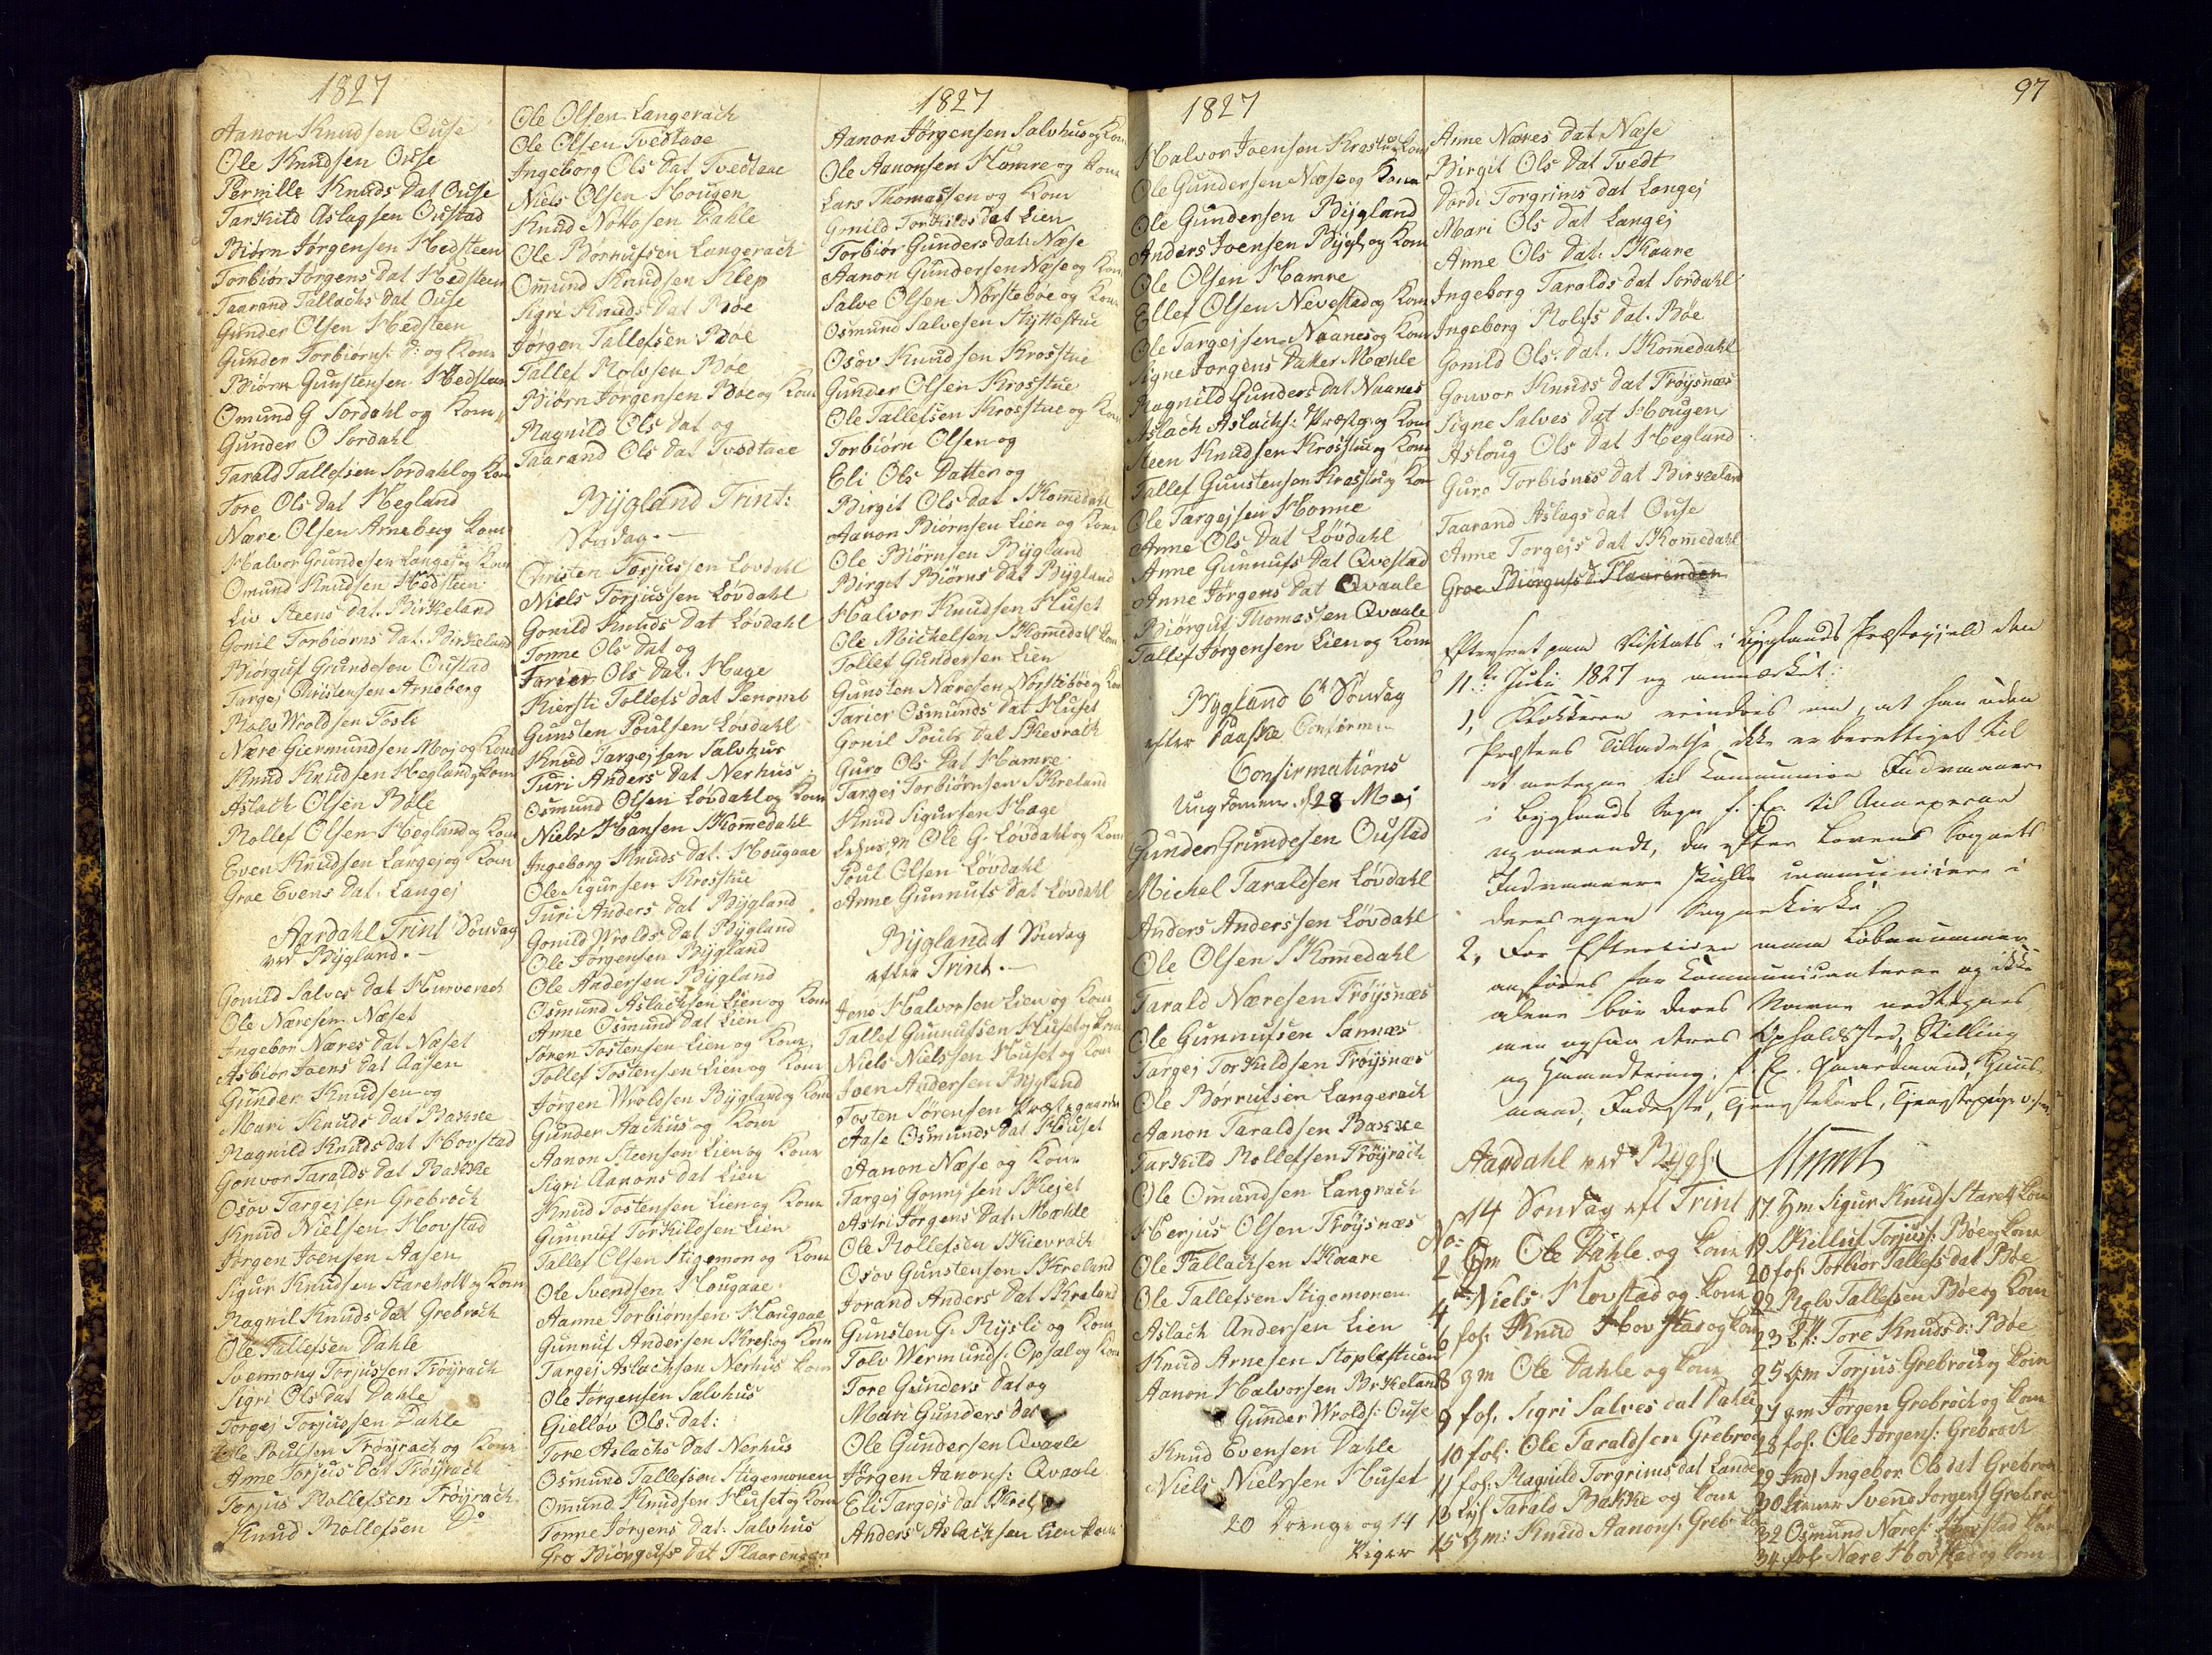 1827
Aanon Knudsen Ouse
Ole Knudsen Ouse
Pernille Knuds Dat Ouse
Tarkild Aslagsen Oustad
Biørn Jørgensen Hedsteen
Torbiør Jørgens Dat Hedsteen
Taarand Tallachs Dat Ouse
Gunder Olsen Hedsteen
Gunder Torbiørns: d: og Kone
Biørn Gunstensen Hedsteen
Omund G Sordahl og Kone
Gunder O Sordahl
Tarald Tallefsen Sordahl og Kon
Tore Ols Dat Hegland
Nære Olsen Arneberg Kone
Halvor Grundesen Langej og Kone
Omund Knudsen Hedsteen
Liv Steens Dat. Birkeland
Gonil Torbiørns Dat. Birkeland
Biørguf Grundesen Oustad
Targej Christensen Arneberg
Rolv Wroldsen Josli
Nære Giermundsen Moj og Kone
Knud Knudsen Hegland og Kone
Aslach Olsen Bøle
Rollef Olsen Hegland og Kone
Even Knudsen Langej og Kone
Groe Evens Dat. Langej
Aardahl Trint Søndag
ved Bÿgland.
Gonild Salves Dat Hurverach
Ole Næresen Næset
Ingebor Næres Dat Næset
Asbiør Joens Dat Aasen
Gunder Knudsen og
Mari Knuds Dat Bakke
Ragnild Knuds Dat Hovstad
Gonvor Taralds Dat Bakke
Osov Targejsen Grebroch
Knud Nielsen Hovstad
Jørgen Joensen Aasen
Sigur Knudsen Stareholt og Kone
Ragnil Knuds Dat Grebroch
Ole Tallefsen Dahle
Svennong Torjussen Frøÿrach
Sigri Ols Dat Dahle
Torgej Torjussen Dahle
Ole Poulsen Frøÿrach og Kone
Anne Torjus Dat Frøÿrach
Torjus Rollefsen Frøÿrach
Knud Rollefsen Do
Ole Olsen Langerach
Ole Olsen Tvedtaae
Ingeborg Ols Dat Tvedtaae
Niels Olsen Hougen
Knud Nottosen Dahle
Ole Børnufsen Langerach
Omund Knudsen Klep
Sigri Knuds Dat Bøe
Jørgen Tallefsen Bøe
Tallef Rolvsen Bøe
Biørn Jørgensen Bøe og Kone
Ragnild Ols Dat og
Taarand Ols Dat Tvedtaae
Bÿgland Trint:
Søndag.
Christen Torjussen Lovdahl
Niels Torjussen Løvdahl
Gonild Knuds Dat Løvdahl
Tonne Ols Dat og
Tarier Ols Dat. Hage
Kiersti Tollefs Dat Senomb
Gunsten Poulsen Løvdahl
Knud Targejsen Salvhus
Turi Anders Dat Nerhus
Osmund Olsen Løvdahl og Kone
Niels Hansen Skomedahl
Ingeborg Knuds Dat. Hougaae
Ole Sigursen Krosstue
Turi Anders Dat Bÿgland
Gonild Wrolds Dat Bÿgland
Ole Jørgensen Bÿgland
Ole Andersen Bÿgland
Osmund Aslachsen Lien og Kone
Anne Osmund Dat Lien
Soren Tostensen Lien og Kone
Tollef Tostensen Lien og Kone
Jørgen Wroldsen Bÿgland og Kone
Gunder Aachus og Kone
Aanon Steensen Lien og Kone
Sigri Aanons Dat Lien
Knud Tostensen Lien og Kone
Gunnuf Torkildsen Lien
Tallef Olsen Stigemon og Kone
Ole Svendsen Hougaae
Aanne Torbiørnsen Hougaae
Gunnuf Andersen Skrel: og Kone
Targej Aslachson Nerhus Kone
Ole Jørgensen Salvhus
Giellov Ols: Dat:
Tore Aslachs Dat Nerhus
Osmund Tallefsen Stigemonen
Omund Knudsen Huset og Kone
Tonne Jørgens Dat: Salvhus
Gro Biørgufs Dat Flaarenden
1827
Aanon Jørgensen Salvhus og Kone
Ole Aanonsen Hamre og Kone
Lars Thomassen og Kone
Gonild Torkilds Dat Lien
Torbiør Gunders Dat: Næse
Aanon Gundersen Næse og Kone
Salve Olsen Norstebøe og Kone
Osmund Salvesen Stÿkkestue
Osov Knudsen Krosstue
Gunder Olsen Krosstue
Ole Tallefsen Krosstue og Kone
Torbiørn Olsen og
Eli Ols Datter og
Birgit Ols Dat Skomedahl
Aanon Biørnsen Lien og Kone
Ole Biørnsen Bÿgland
Birgit Biørns Dat Bÿgland
Halvor Knudsen Huset
Ole Michelsen Skomedahl Kone
Tollef Gundersen Lien
Gunsten Næresen Norstebøe og Kone
Tarier Osmunds Dat Huset
Gonil Pouls Dat Skevrach
Guro Ols Dat Hamre
Targej Torbiørnsen Skreland
Knud Sigursen Hage
Ole G. Løvdahl og Kone
Poul Olsen Løvdahl
Anne Gunnufs Dat Løvdahl
Bÿgland 1 Søndag
efter Trint.
Jens Halvorsen Lien og Kone
Tallef Gunnufsen Huset og Kone
Niels Nielssen Huset og Kone
Joen Andersen Bÿgland
Tosten Sørensen Præstegaarden
Aase Osmunds Dat Huset
Aanon Næse og Kone
Targej Gonnjsen Skejet
Astri Jørgens Dat. Mæhle
Ole Rollefsen Skievrach
Osov Gunstensen Skreland
Jorand Anders Dat Skreland
Gunsten G. Rÿsli og Kone
Tolv Wermunds. Opsal og Kone
Tore Gunders Dat og
Mari Gunders Dat
Ole Gundersen Qvaale
Jørgen Aanons: Qvaale
Eli Targejs Dat Skrel
Anders Aslachsen Lien Kone
1827
Halvor Joensen Krostue Kone
Ole Gundersen Næse og Kone
Ole Gundersen Bÿgland
Anders Joensen Bÿgl og Kone
Ole Olsen Hamre
Ellef Olsen Nevestad og Kone
Ole Targejsen Naanes og Kone
Signe Jorgens Datter Mæhle
Ragnild Gunders Dat Naanes
Aslach Aslachs: Præstg: og Kone
Steen Knudsen Krosstue og Kone
Tallef Gunstensen Krosstue og Kone
Ole Targejsen Honne
Anne Ols Dat Løvdahl
Anne Gunnufs Dat Qvestad
Anne Jørgens Dat Qvaale
Biørguf Thomassen Qvaale
Tallef Jørgensen Lien og Kone
Bÿgland 6te Søndag
efter Paaske
Confirmations
Ungdommen d 28 Maj
Gunder Grundesen Oustad
Michel Taraldsen Løvdahl
Anders Anderssen Løvdahl
Ole Olsen Skomedahl
Tarald Næresen Frøÿsnæs
Ole Gunnufsen Sannæs
Targej Torkildsen Frøÿsnæs
Ole Børnufsen Langerach
Aanon Taraldsen Bakke
Tarkild Rollefsen Frøÿrach
Ole Omundsen Langrach
Herjus Olsen Frøÿsnæs
Ole Tallachsen Skaare
Ole Tallefsen Stigemonen
Aslach Andersen Lien
Knud Arnesen Stoplestuen
Aanon Halvorsen Birkeland
Gunder Wrolds: Ouse
Knud Evensen Dahle
Niels Nielssen Huset
20 Drenge og 14
Piger
97
Anne Næres Dat Næse
Birgit Ols Dat Tvedt
Dordi Torgrims Dat Langej
Mari Ols Dat Langej
Anne Ols Dat: Skaare
Ingeborg Taralds Dat Sordahl
Ingeborg Rolvs Dat. Bøe
Gonild Ols. Dat. Skomedahl
Gonvor Knuds Dat Frøÿsnæs
Signe Salves Dat Hougen
Asloug Ols Dat Hegland
Guro Torbiørns Dat Birkeland
Taarand Aslags Dat Ouse
Anne Torgejs Dat Skomedahl
Groe Biørgufs d. Flaarenden
Efterseet paa Visitats i Byglands Præstegjeld den
11te Julii 1827 og anmærket:
1, Klokkeren erindres om, at han uden
Præstens Tilladelse ikke er berettiget til
at antegne til Communion Indvaanere
i Byglands Sogn f. Ex. til Annexerne
og omvendt, da efter Lovens Sognets
Indvaanere skulle communicere i
deres egen Sognekirke.
2, For Eftertiden maa Løbenummer
anføres for Communicanterne og ikke
alene bør deres Navne antegnes,
men ogsaa deres Opholdssted, Stilling
og Haandtering, f. Ex. Gaardmand, Huus-
mand, Inderste, Tjenestekarl, Tjenestepige o.s.v.
Aardahl ved Bÿgl
14 Søndag eft Trint
No
2 Gm Ole Dahle og Kone
4 Niels Hovstad og Kone
6 fol: Knud Hovstad og Kone
8 gm Ole Dahle og Kone
9 fol. Sigri Salves dat Dahle
10 fol. Ole Taraldsen Grebroch
11 fol: Ragnild Torgrims dat
13 Tarald Bakke og Kone
15 Gm: Knud Aanons. Greb
17 Gm Sigur Knuds Stareh Kone
19 Skelluf Torjuss: Bøe og Kone
20 fol: Torbiør Tallefs dat Bøe
22 Rolv Tallefsen Bøe og Kone
23 Tore Knuds d: Bøe
25 Gm Torjus Grebroch og Kone
27 gm Jørgen Grebroch og Kone
28 fol. Ole Jørgens: Grebroch
29 Ind Ingebor Ols dat Grebroch
30 Svend Jorgens Grebroch
32 Osmund Næres: Hovstad Kone
34 fol Nære Hovstad og Kone